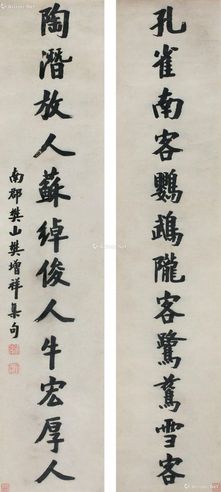 孔雀南客鸚鵡隴客鷺鶿雪客
陶潛放人蘇綽俊人牛宏厚人
南郡樊山樊增祥集句